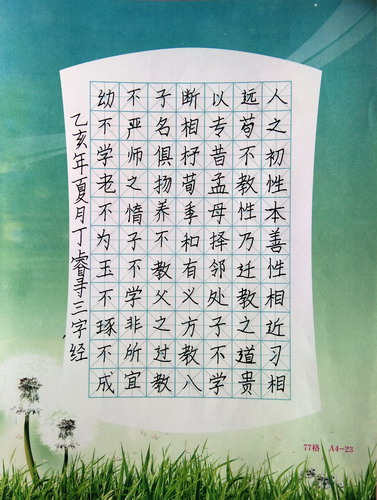 人之初性本善性相近习相
远苟不教性乃迁教之道贵
以专昔孟母择邻处子不学
断相杼荀季和有义方教八
子名俱扬养不教父之过教
不严师之惰子不学非所宜
幼不学老不为玉不琢不成
乙亥年夏月丁睿寻三字经
77格 A4-23